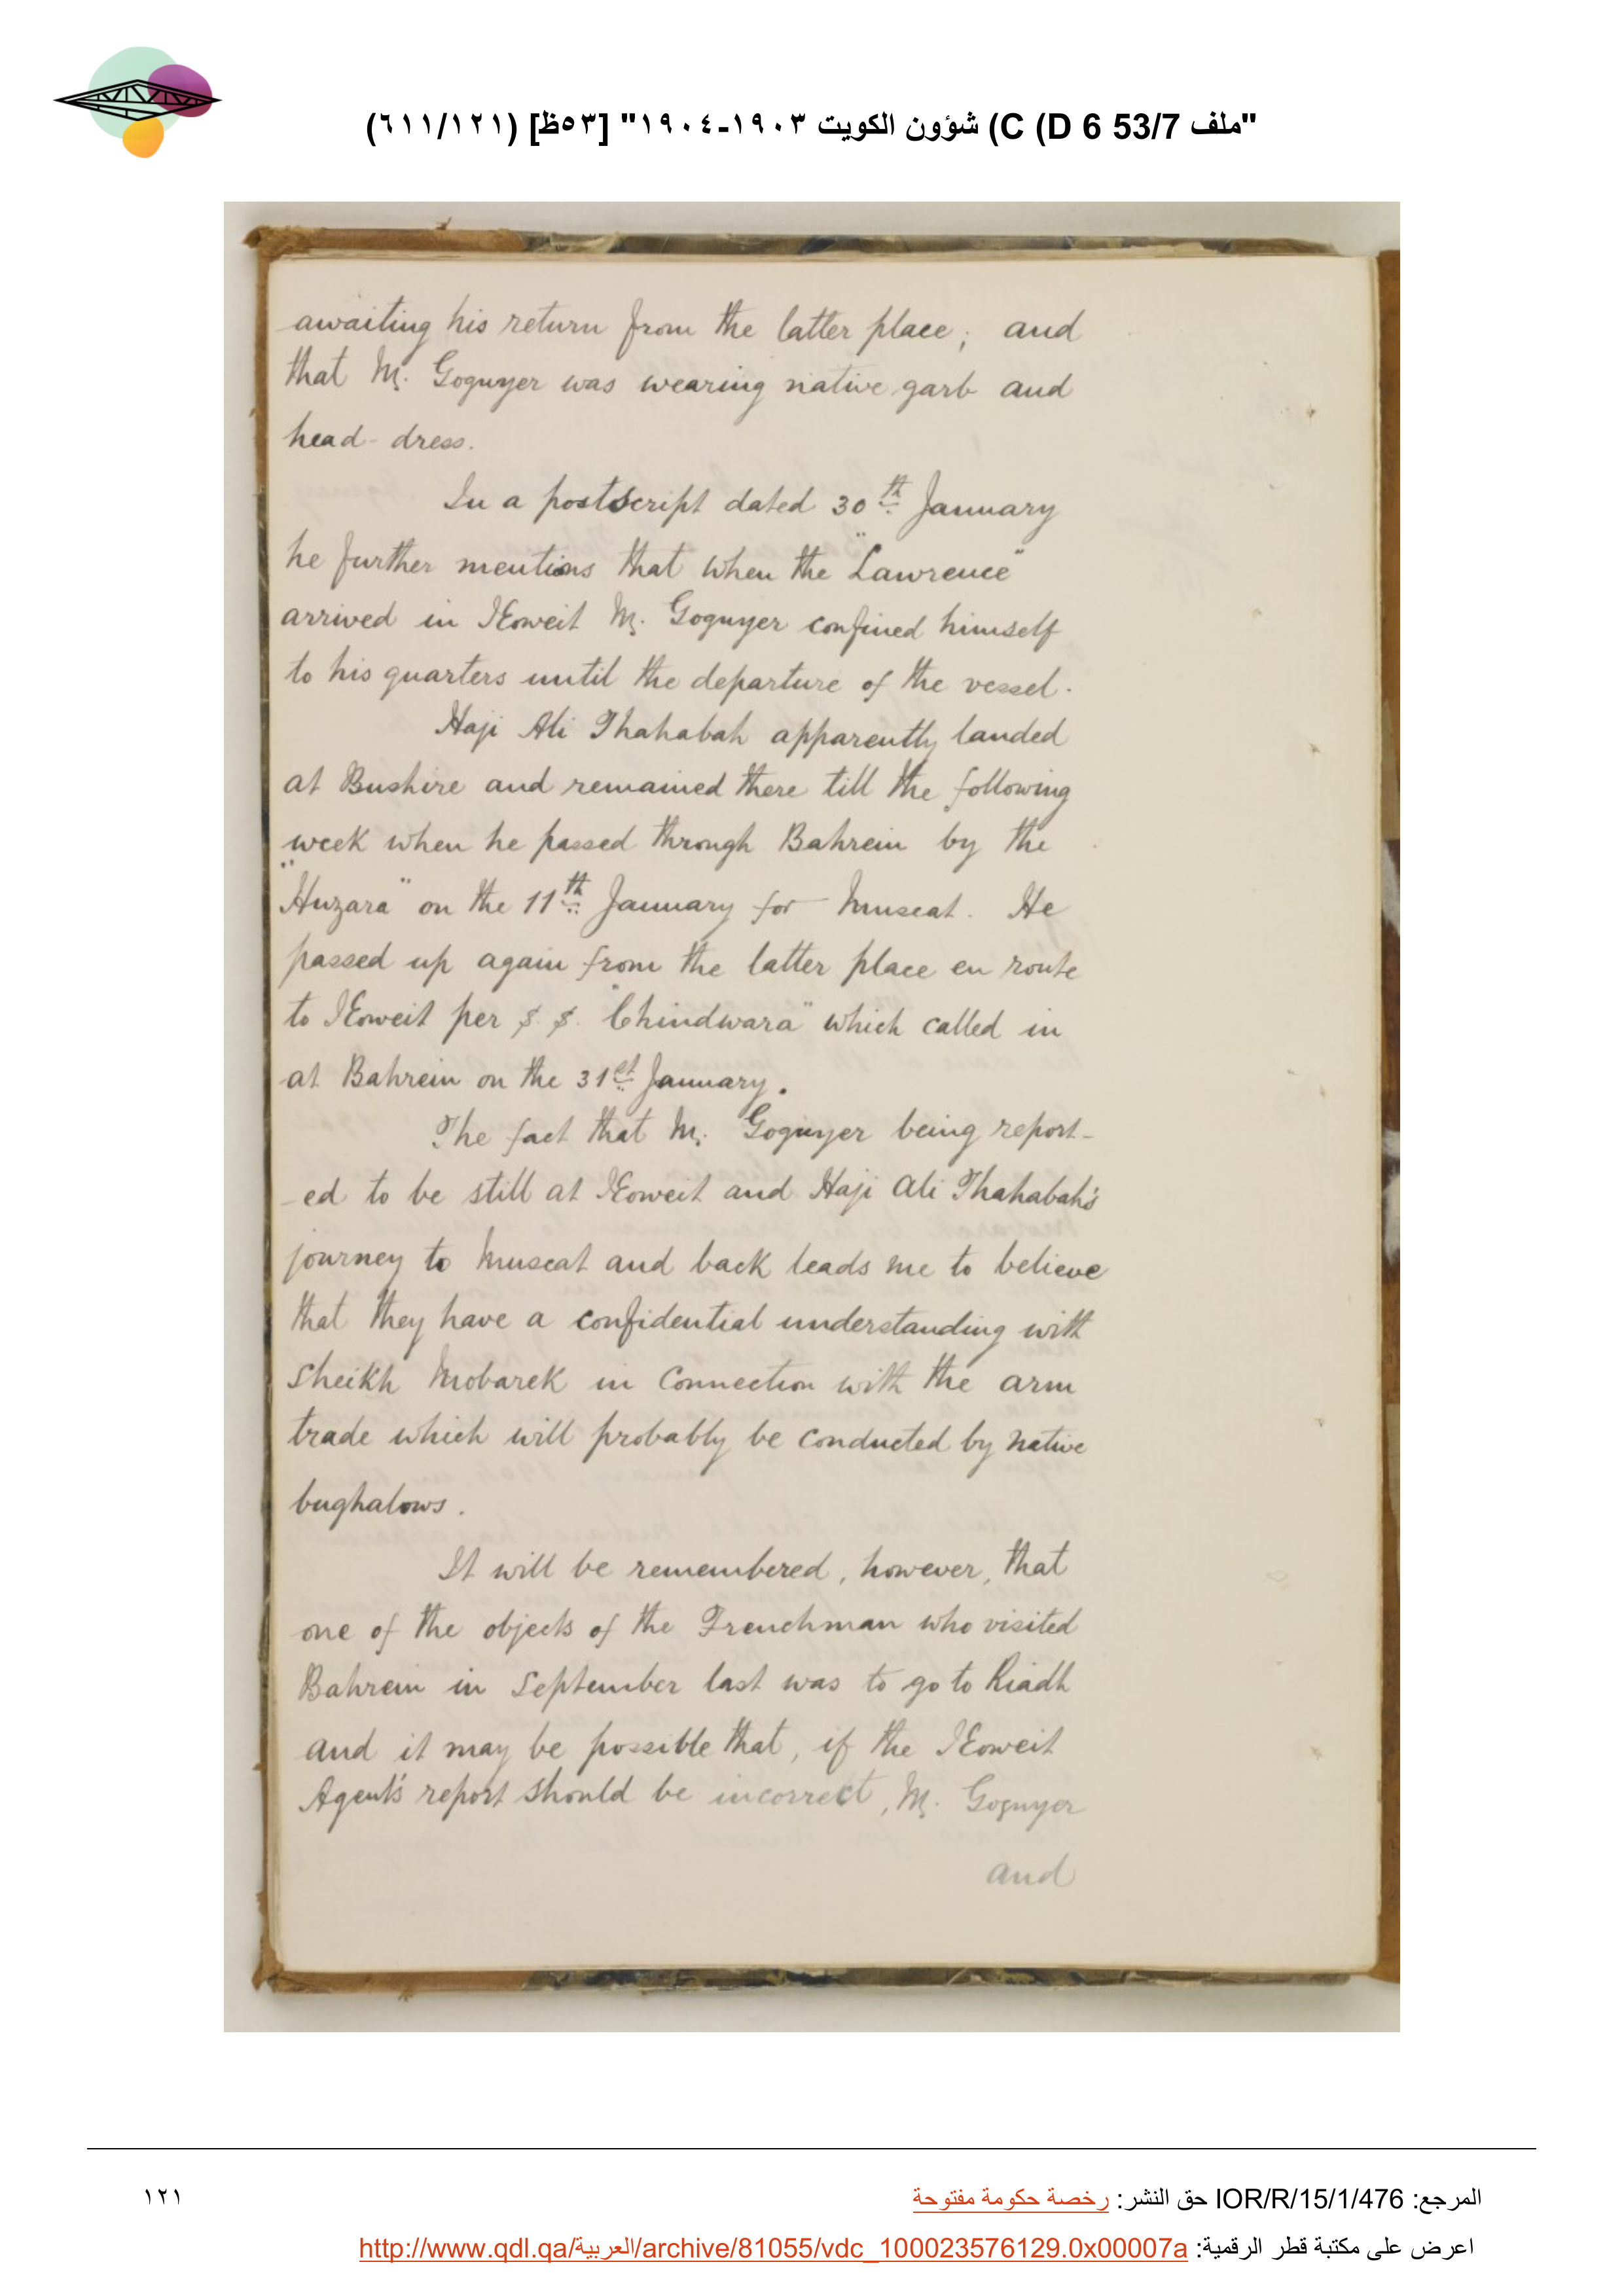 "ملف 53/7 C (D 6) شؤون الكويت ١٩٠٣-١٩٠٤" [٥٣ظ] (٦١١/١٢١)
awaiting his return from the latter place; and
that M. Goguyer was wearing native garb and
head-dress.
In a postscript dated 30th January
he further mentions that when the "Lawrence"
arrived in Koweit M. Goguyer confined himself
to his quarters until the departure of the vessel.
Haji Ali Thahabah apparently landed
at Bushire and remained there till the following
week when he passed through Bahrein by the
"Huzara" on the 11th January for Muscat. He
passed up again from the latter place en route
to Koweit per S. S. "Chindwara" which called in
at Bahrein on the 31st January.
The fact that M. Goguyer being report-
-ed to be still at Koweit and Haji Ali Thahabah's
journey to Muscat and back leads me to believe
that they have a confidential understanding with
Sheikh Mobarek in connection with the arm
trade which will probably be conducted by native
bughalows.
It will be remembered, however, that
one of the objects of the Frenchman who visited
Bahrein in September last was to go to Riadh
and it may be possible that, if the Koweit
Agent's report should be incorrect, M. Goguyer
and
المرجع: IOR/R/15/1/476 حق النشر: رخصة حكومة مفتوحة
١٢١
اعرض على مكتبة قطر الرقمية: http://www.qdl.qa/العربية/archive/81055/vdc_100023576129.0x00007a